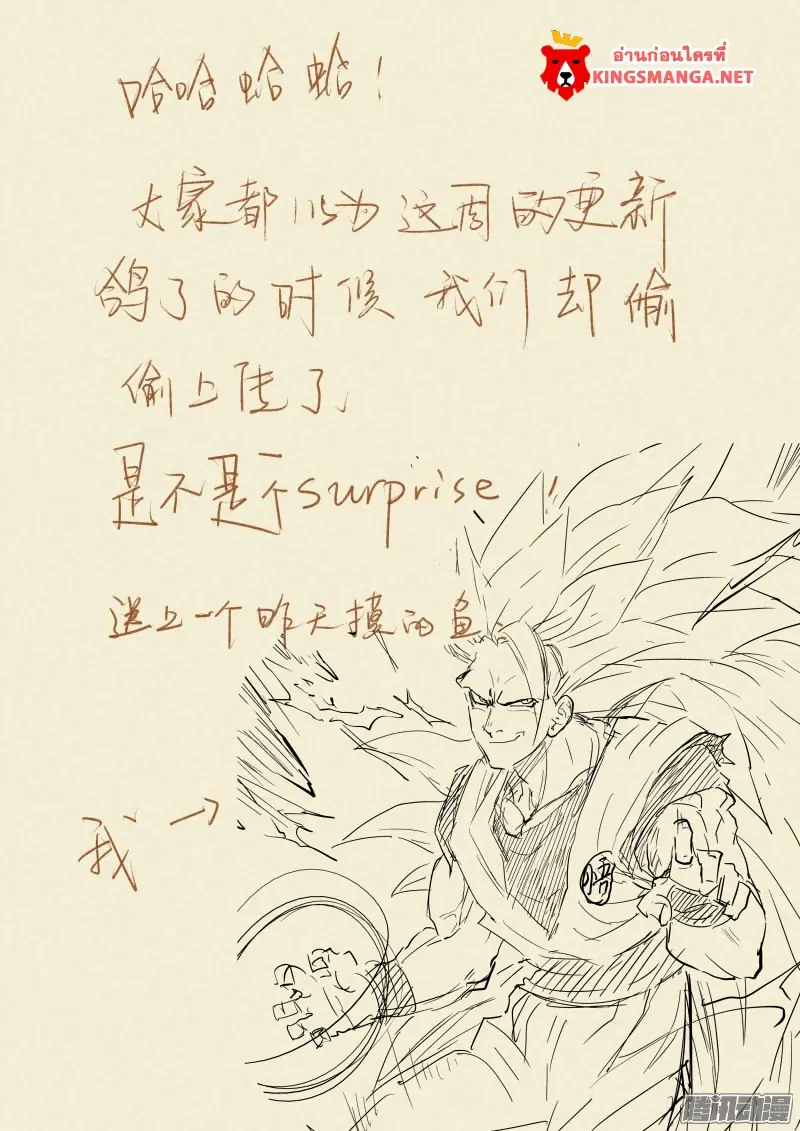 อ่านก่อนใครที่
KINGSMANGA.NET
哈哈哈哈！
大家都以为这周的更新
鸽了的时候 我们却偷
偷上传了
是不是个surprise！
送上一个昨天摸的鱼。
我→
悟
腾讯动漫